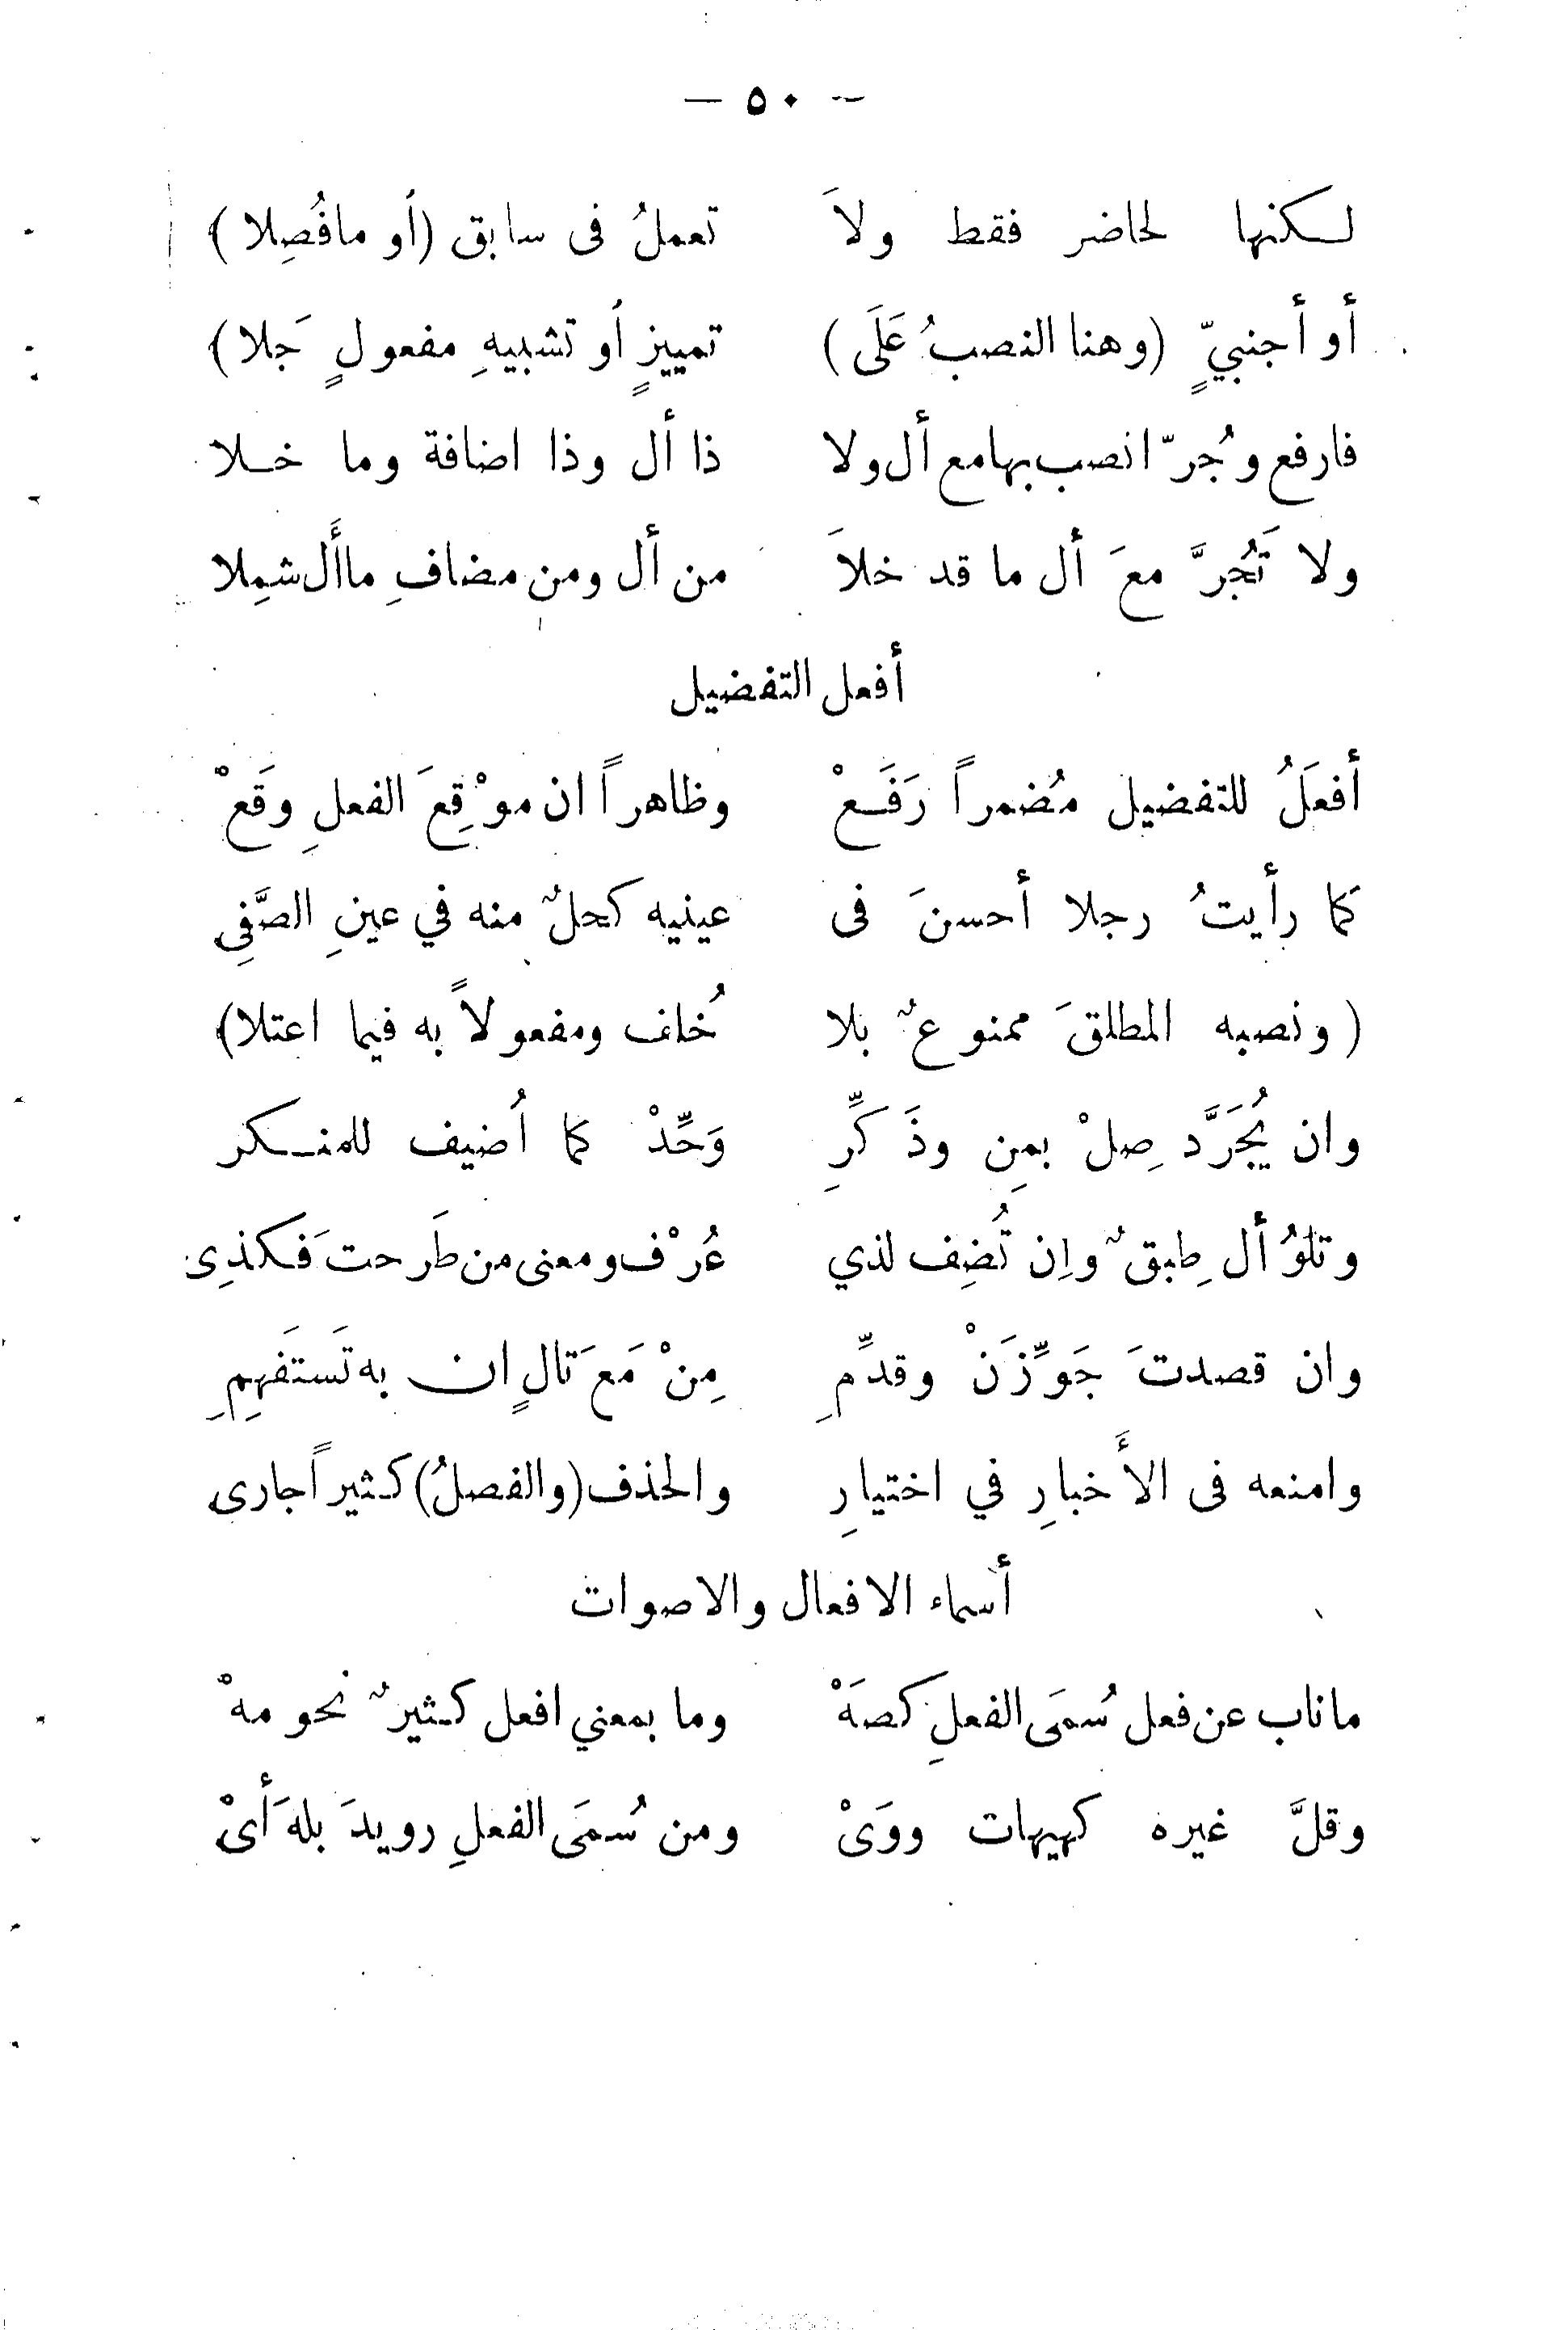 — ٥٠ —
لكنها لحاضر فقط ولاَ تعملُ فى سابق (أو مافُصِلا)
أو أجنبيٍّ (وهنا النصبُ عَلَى) تمييزٍ أو تشبيهِ مفعولٍ جَلا)
فارفع وجُرّ انصب بها مع أل ولا ذا أل وذا اضافة وما خلا
ولا تَجُرَّ معَ أل ما قد خلاَ من أل ومن مضافِ ماأَل شمِلا
أفعل التفضيل
أفعَلُ للتفضيل مُضمراً رَفَعْ وظاهراً ان موْقِعَ الفعلِ وقَعْ
كما رأيتُ رجلا أحسنَ فى عينيه كحلٌ منه في عينِ الصَّفِى
(ونصبه المطلقَ ممنوعٌ بلا خُلف ومفعولاً به فيما اعتلا)
وان يُجَرَّد صِلْ بمِن وذَكِّرِ وَحِّدْ كما أُضيف للمنكر
وتلوُ أل طِبقٌ وإِن تُضِف لذي عُرْف ومعنى من طَرحتَ فكذِى
وان قصدتَ جَوِّزَنْ وقدِّمِ مِنْ مَعَ تالٍ ان به تَستَفهِمِ
وامنعه فى الأَخبارِ في اختيارِ والحذف (والفصلُ) كثيراً جارى
أسماء الافعال والاصوات
ماناب عن فعل سُمَى الفعلِ كصَهْ وما بمعني افعل كثيرٌ نحو مهْ
وقلَّ غيره كهيهات ووَىْ ومن سُمَى الفعلِ رويدَ بلهَ أىْ